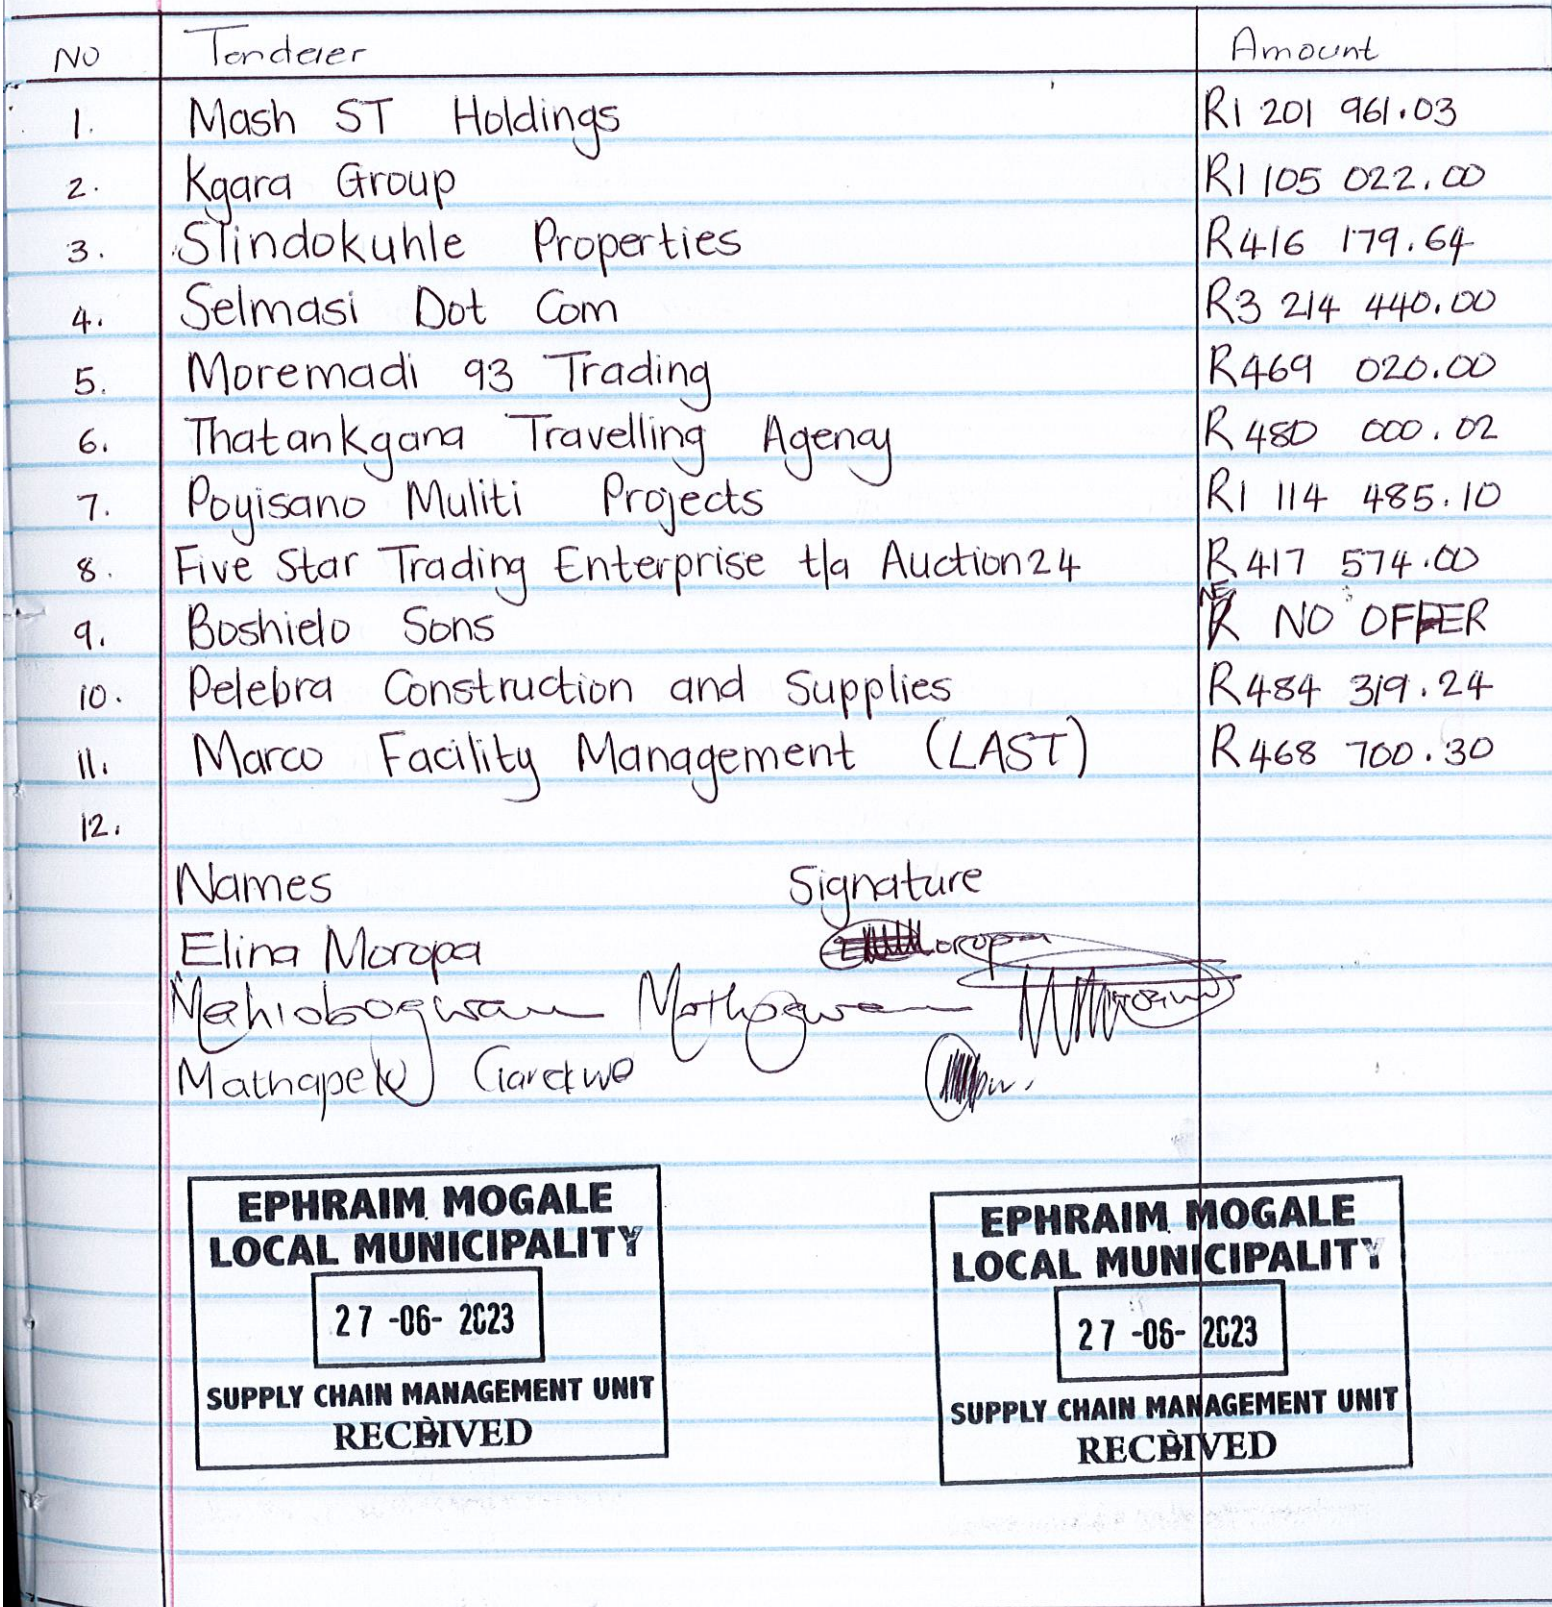 NO Tenderer Amount
1. Mash ST Holdings R1 201 961.03
2. Kgara Group R1 105 022.00
3. Slindokuhle Properties R416 179.64
4. Selmasi Dot Com R3 214 440.00
5. Moremadi 93 Trading R469 020.00
6. Thatankgana Travelling Agency R480 000.02
7. Poyisano Muliti Projects R1 114 485.10
8. Five Star Trading Enterprise t/a Auction24 R417 574.00
9. Boshielo Sons NO OFFER
10. Pelebra Construction and Supplies R484 319.24
11. Marco Facility Management (LAST) R468 700.30
12.
Names Signature
Elina Moropa
Mathapelo
EPHRAIM MOGALE
LOCAL MUNICIPALITY
27 -06- 2023
SUPPLY CHAIN MANAGEMENT UNIT
RECEIVED
EPHRAIM MOGALE
LOCAL MUNICIPALITY
27 -06- 2023
SUPPLY CHAIN MANAGEMENT UNIT
RECEIVED